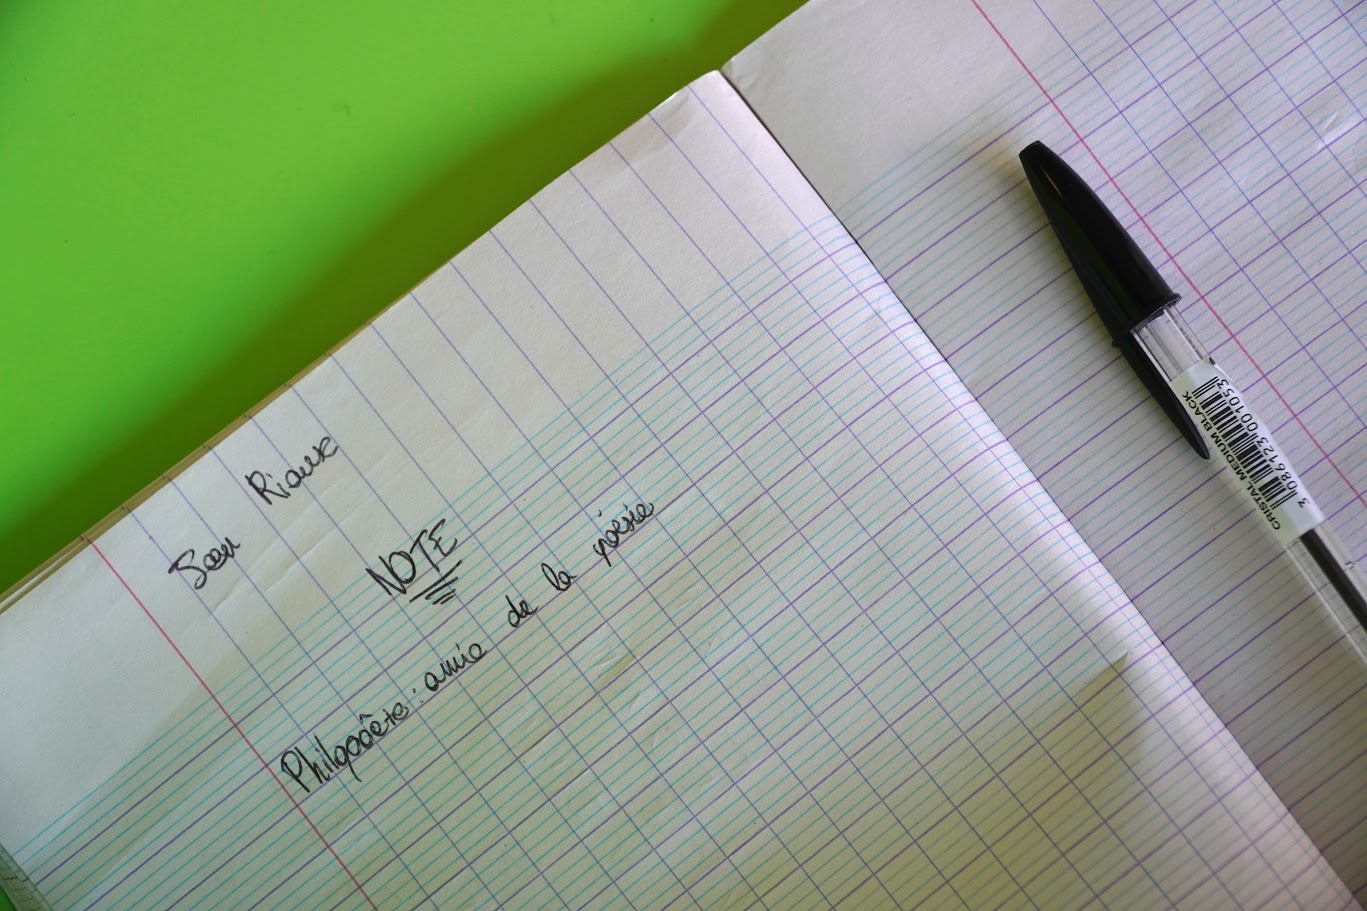 Sean Rioux
NOTE
Philopoète : amie de la poésie
CRISTAL MEDIUM BLACK
3 086123 001053